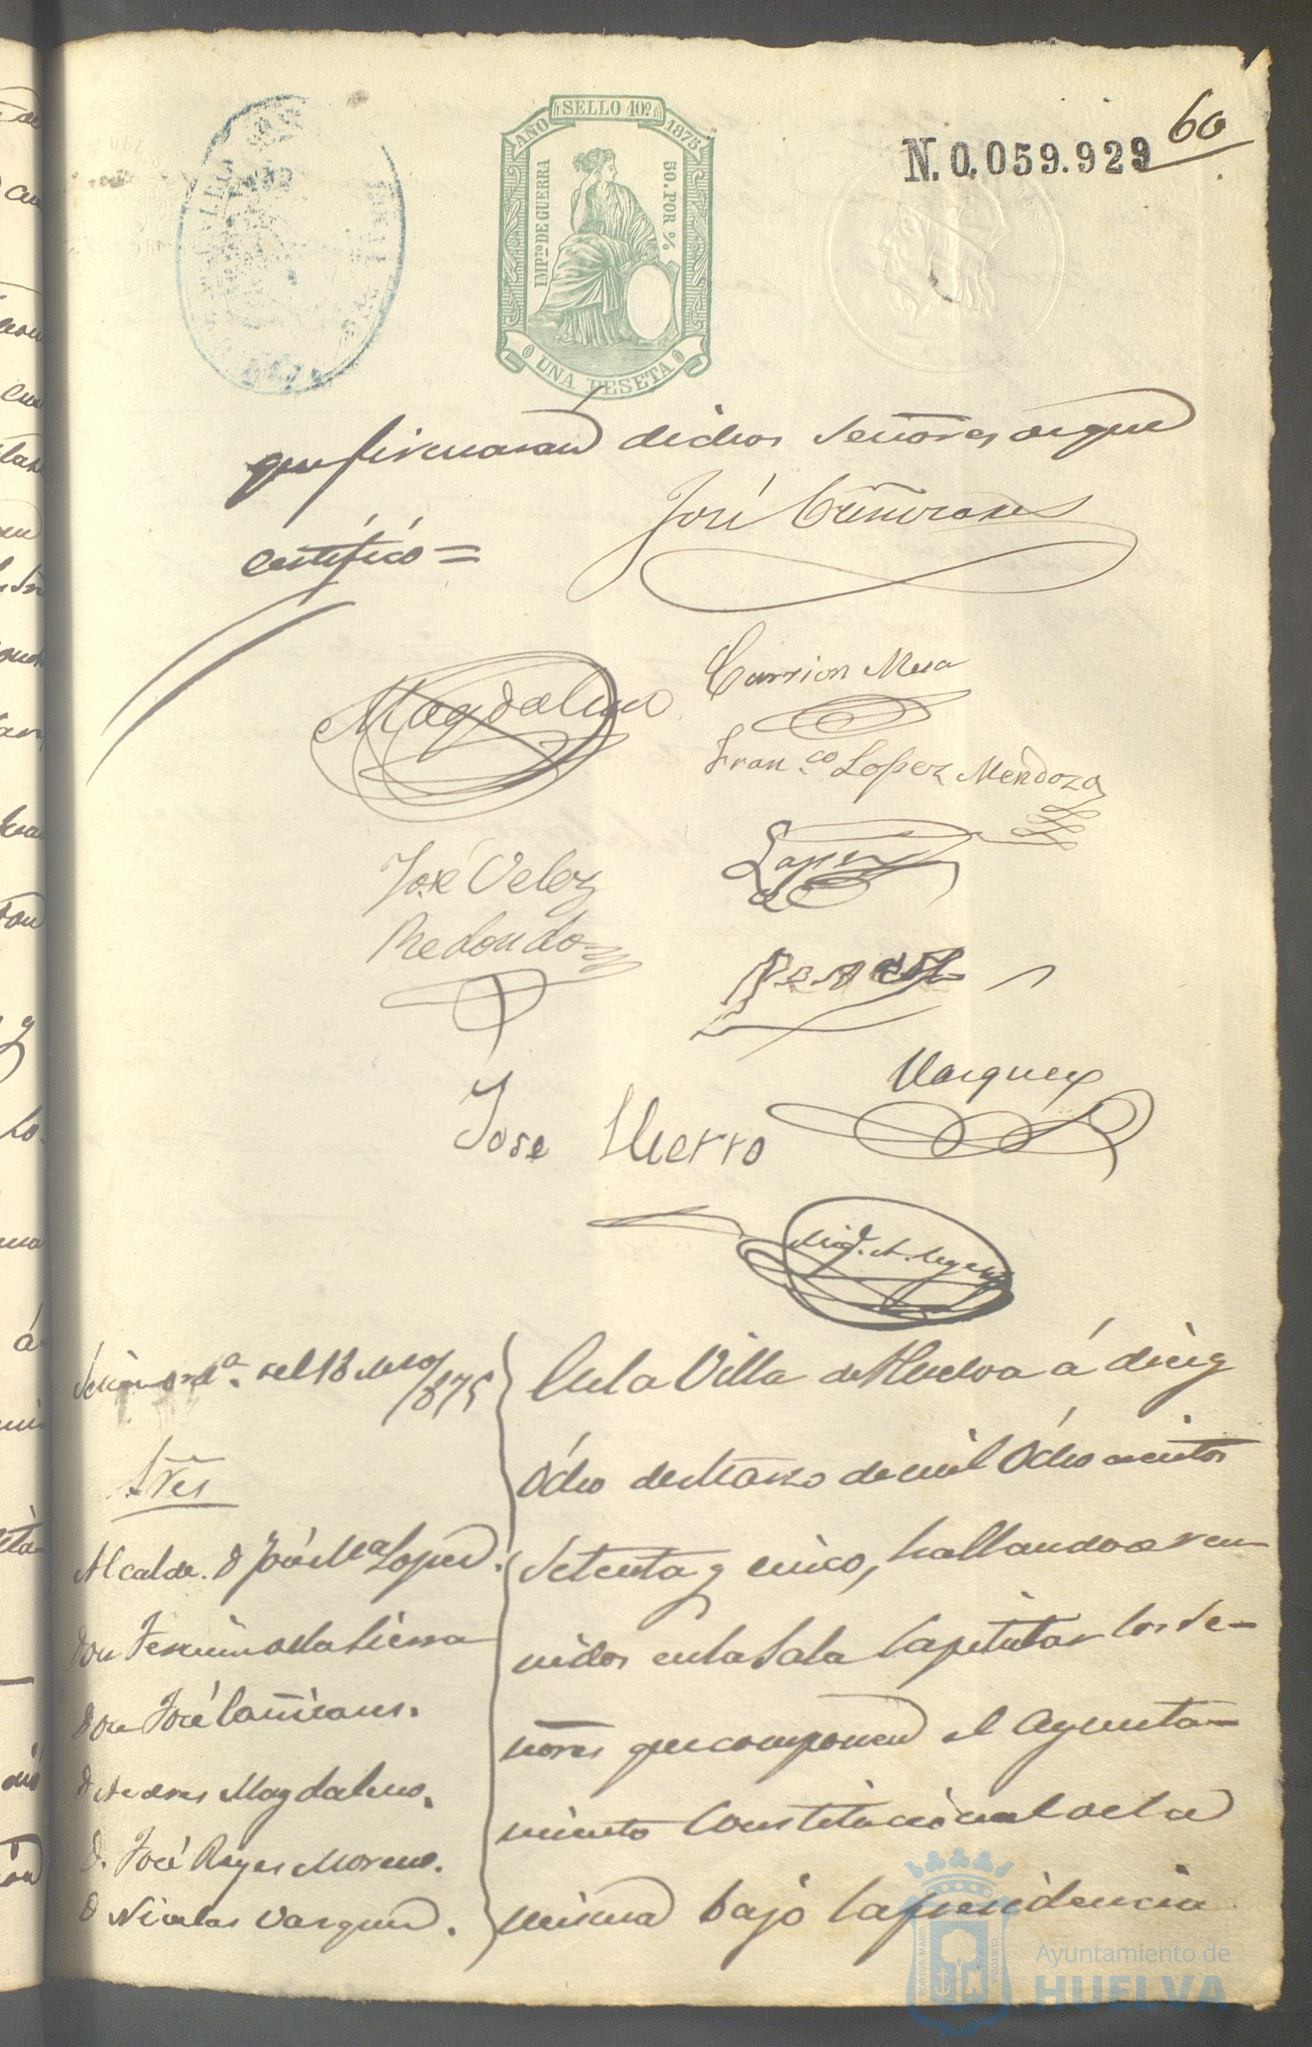 60
N. 0.059.929
AÑO SELLO 10º 1875
IMPTO DE GUERRA
50. POR %
UNA PESETA
que firmarán dichos Señores de que
certifico =
José
Magdaleno
Carrion Mesa
Fran.co Lopez Mendoza
José Velez
Redondo
Lopez
Vazquez
Jose Hierro
Sesion ord.a del 18 Mzo/875
Sres
Alcalde. D José Ma Lopez.
Don Fermin de la Sierra
Don José
D Andres Magdaleno.
D. José Reyes Moreno.
D Nicolas Vazquez.
En la Villa de Huelva á diez y
Ocho de Marzo de mil Ocho cientos
Setenta y cinco, hallandose reu-
nidos en la Sala Capitular los Se-
ñores que componen el Ayunta-
miento Constitucional de la
misma bajo la presidencia
Ayuntamiento de
HUELVA